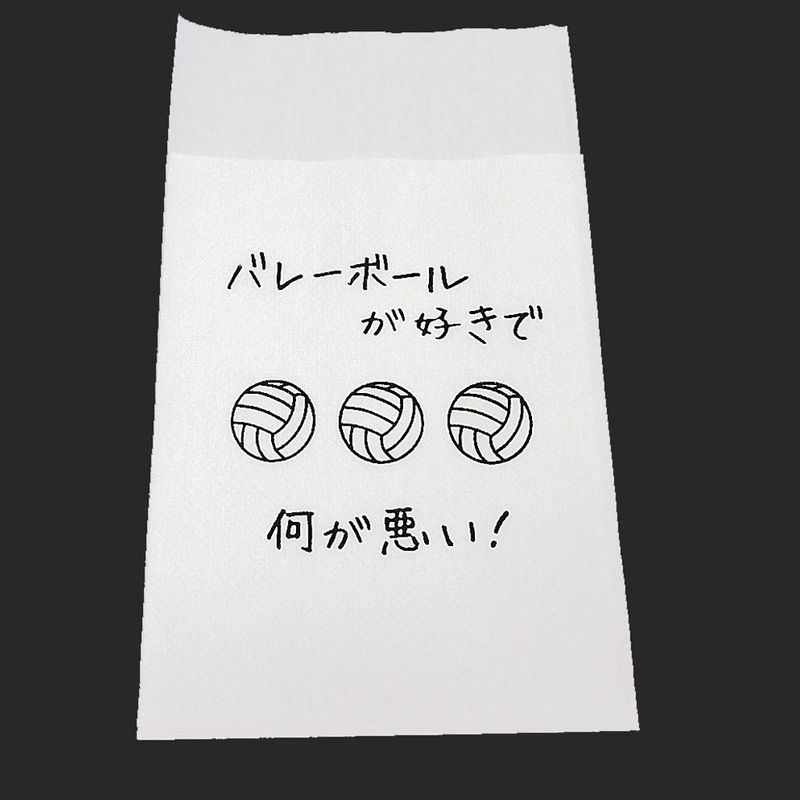 バレーボール
が好きで
何が悪い!